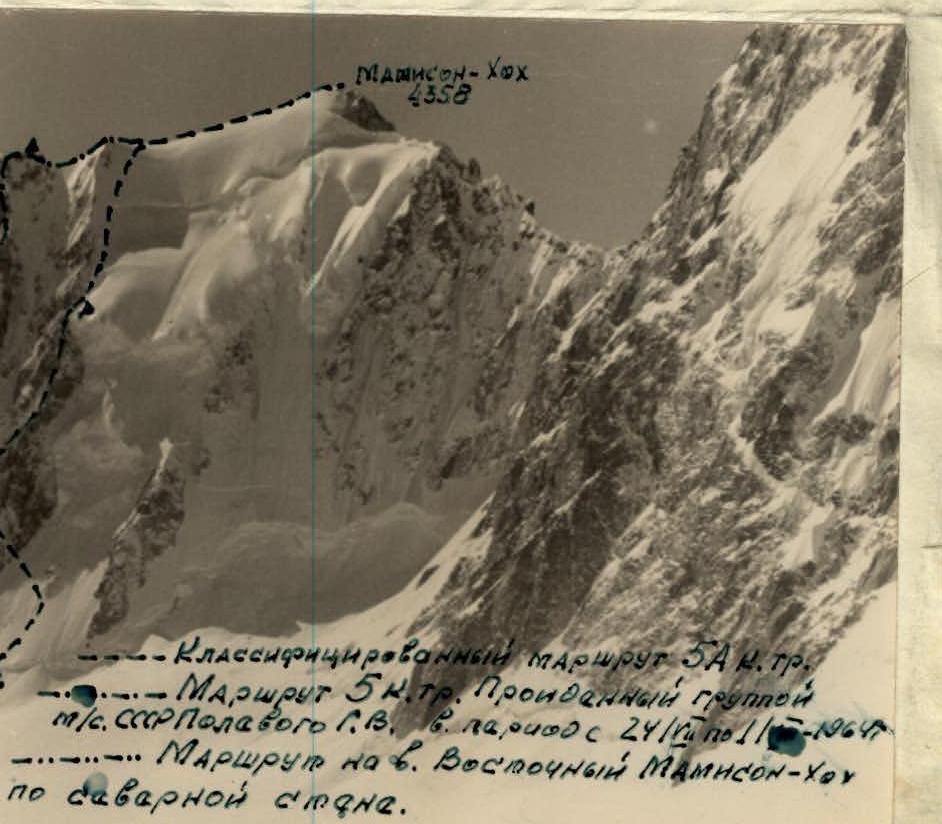 Мамисон-Хох
4358
Классифицированный маршрут 5А к.тр.
Маршрут 5 к.тр. Пройданный группой
м/с. СССР Полавого Г.В. в. париод с 24/VII по 1/ -1964г
Маршрут на в. Восточный Мамисон-Хох
по саварной стане.